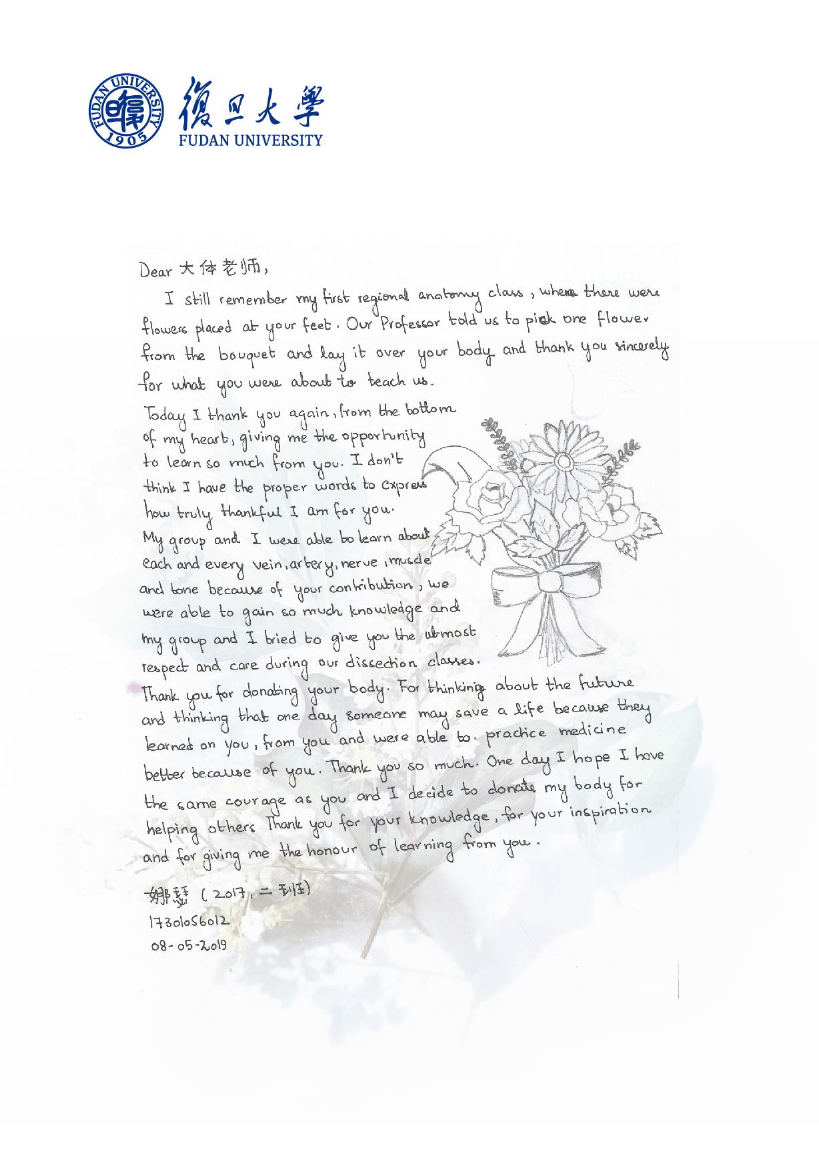 FUDAN UNIVERSITY
1905
復旦大學
FUDAN UNIVERSITY
Dear 大体老师,
I still remember my first regional anatomy class, where there were
flowers placed at your feet. Our Professor told us to pick one flower
from the bouquet and lay it over your body and thank you sincerely
for what you were about to teach us.
Today I thank you again, from the bottom
of my heart, giving me the opportunity
to learn so much from you. I don't
think I have the proper words to express
how truly thankful I am for you.
My group and I were able to learn about
each and every vein, artery, nerve, muscle
and bone because of your contribution, we
were able to gain so much knowledge and
my group and I tried to give you the utmost
respect and care during our dissection classes.
Thank you for donating your body. For thinking about the future
and thinking that one day someone may save a life because they
learned on you, from you and were able to practice medicine
better because of you. Thank you so much. One day I hope I have
the same courage as you and I decide to donate my body for
helping others. Thank you for your knowledge, for your inspiration
and for giving me the honour of learning from you.
娜瑟 (2017, 二班)
17301056012
08-05-2019